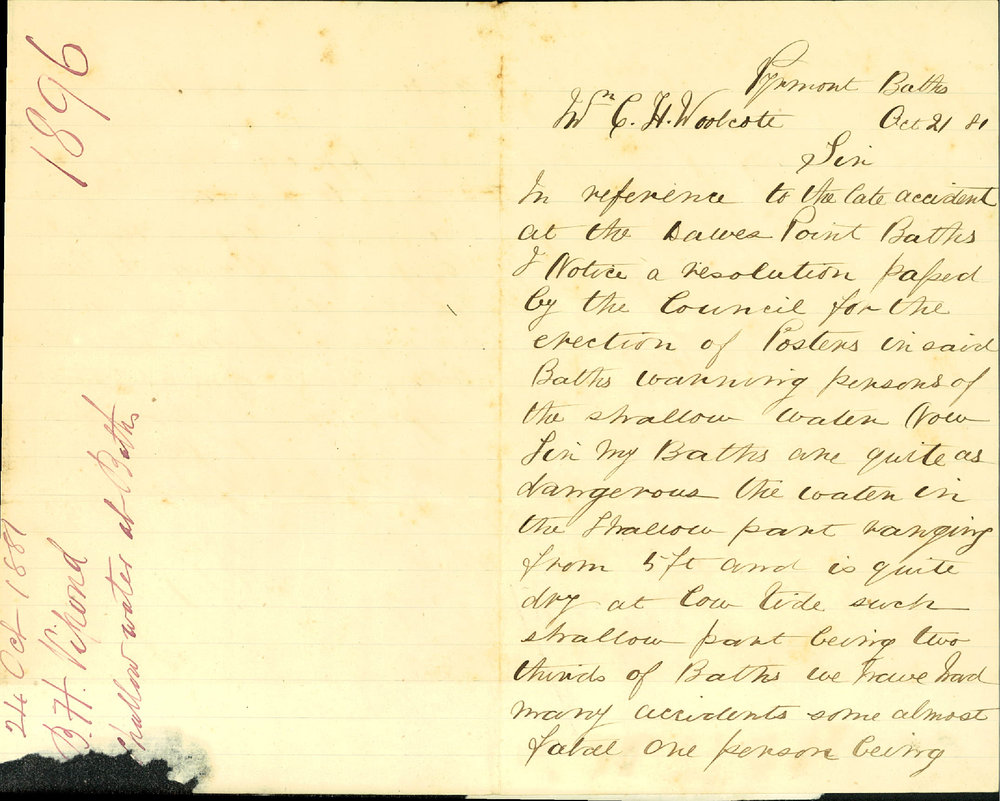 1896
24 Oct 1881
B. H. Vipond
Shallow water at Baths
Pyrmont Baths
Mr C. H. Woolcote Oct 21 81
Sir
In reference to the late accident
at the Dawes Point Baths
I Notice a resolution passed
by the Council for the
erection of Posters in said
Baths warning persons of
the shallow water Now
Sir My Baths are quite as
dangerous the water in
the Shallow part ranging
from 5 ft and is quite
dry at low tide such
shallow part being two
thirds of Baths we have had
many accidents some almost
fatal One person being